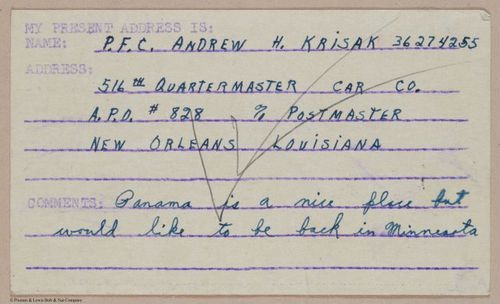 MY PRESENT ADDRESS IS:
NAME: P.F.C. ANDREW H. KRISAK 36274255
ADDRESS:
516 TH QUARTERMASTER CAR CO.
A.P.O. # 828 % POSTMASTER
NEW ORLEANS LOUISIANA
COMMENTS: Panama is a nice place but
would like to be back in Minnesota